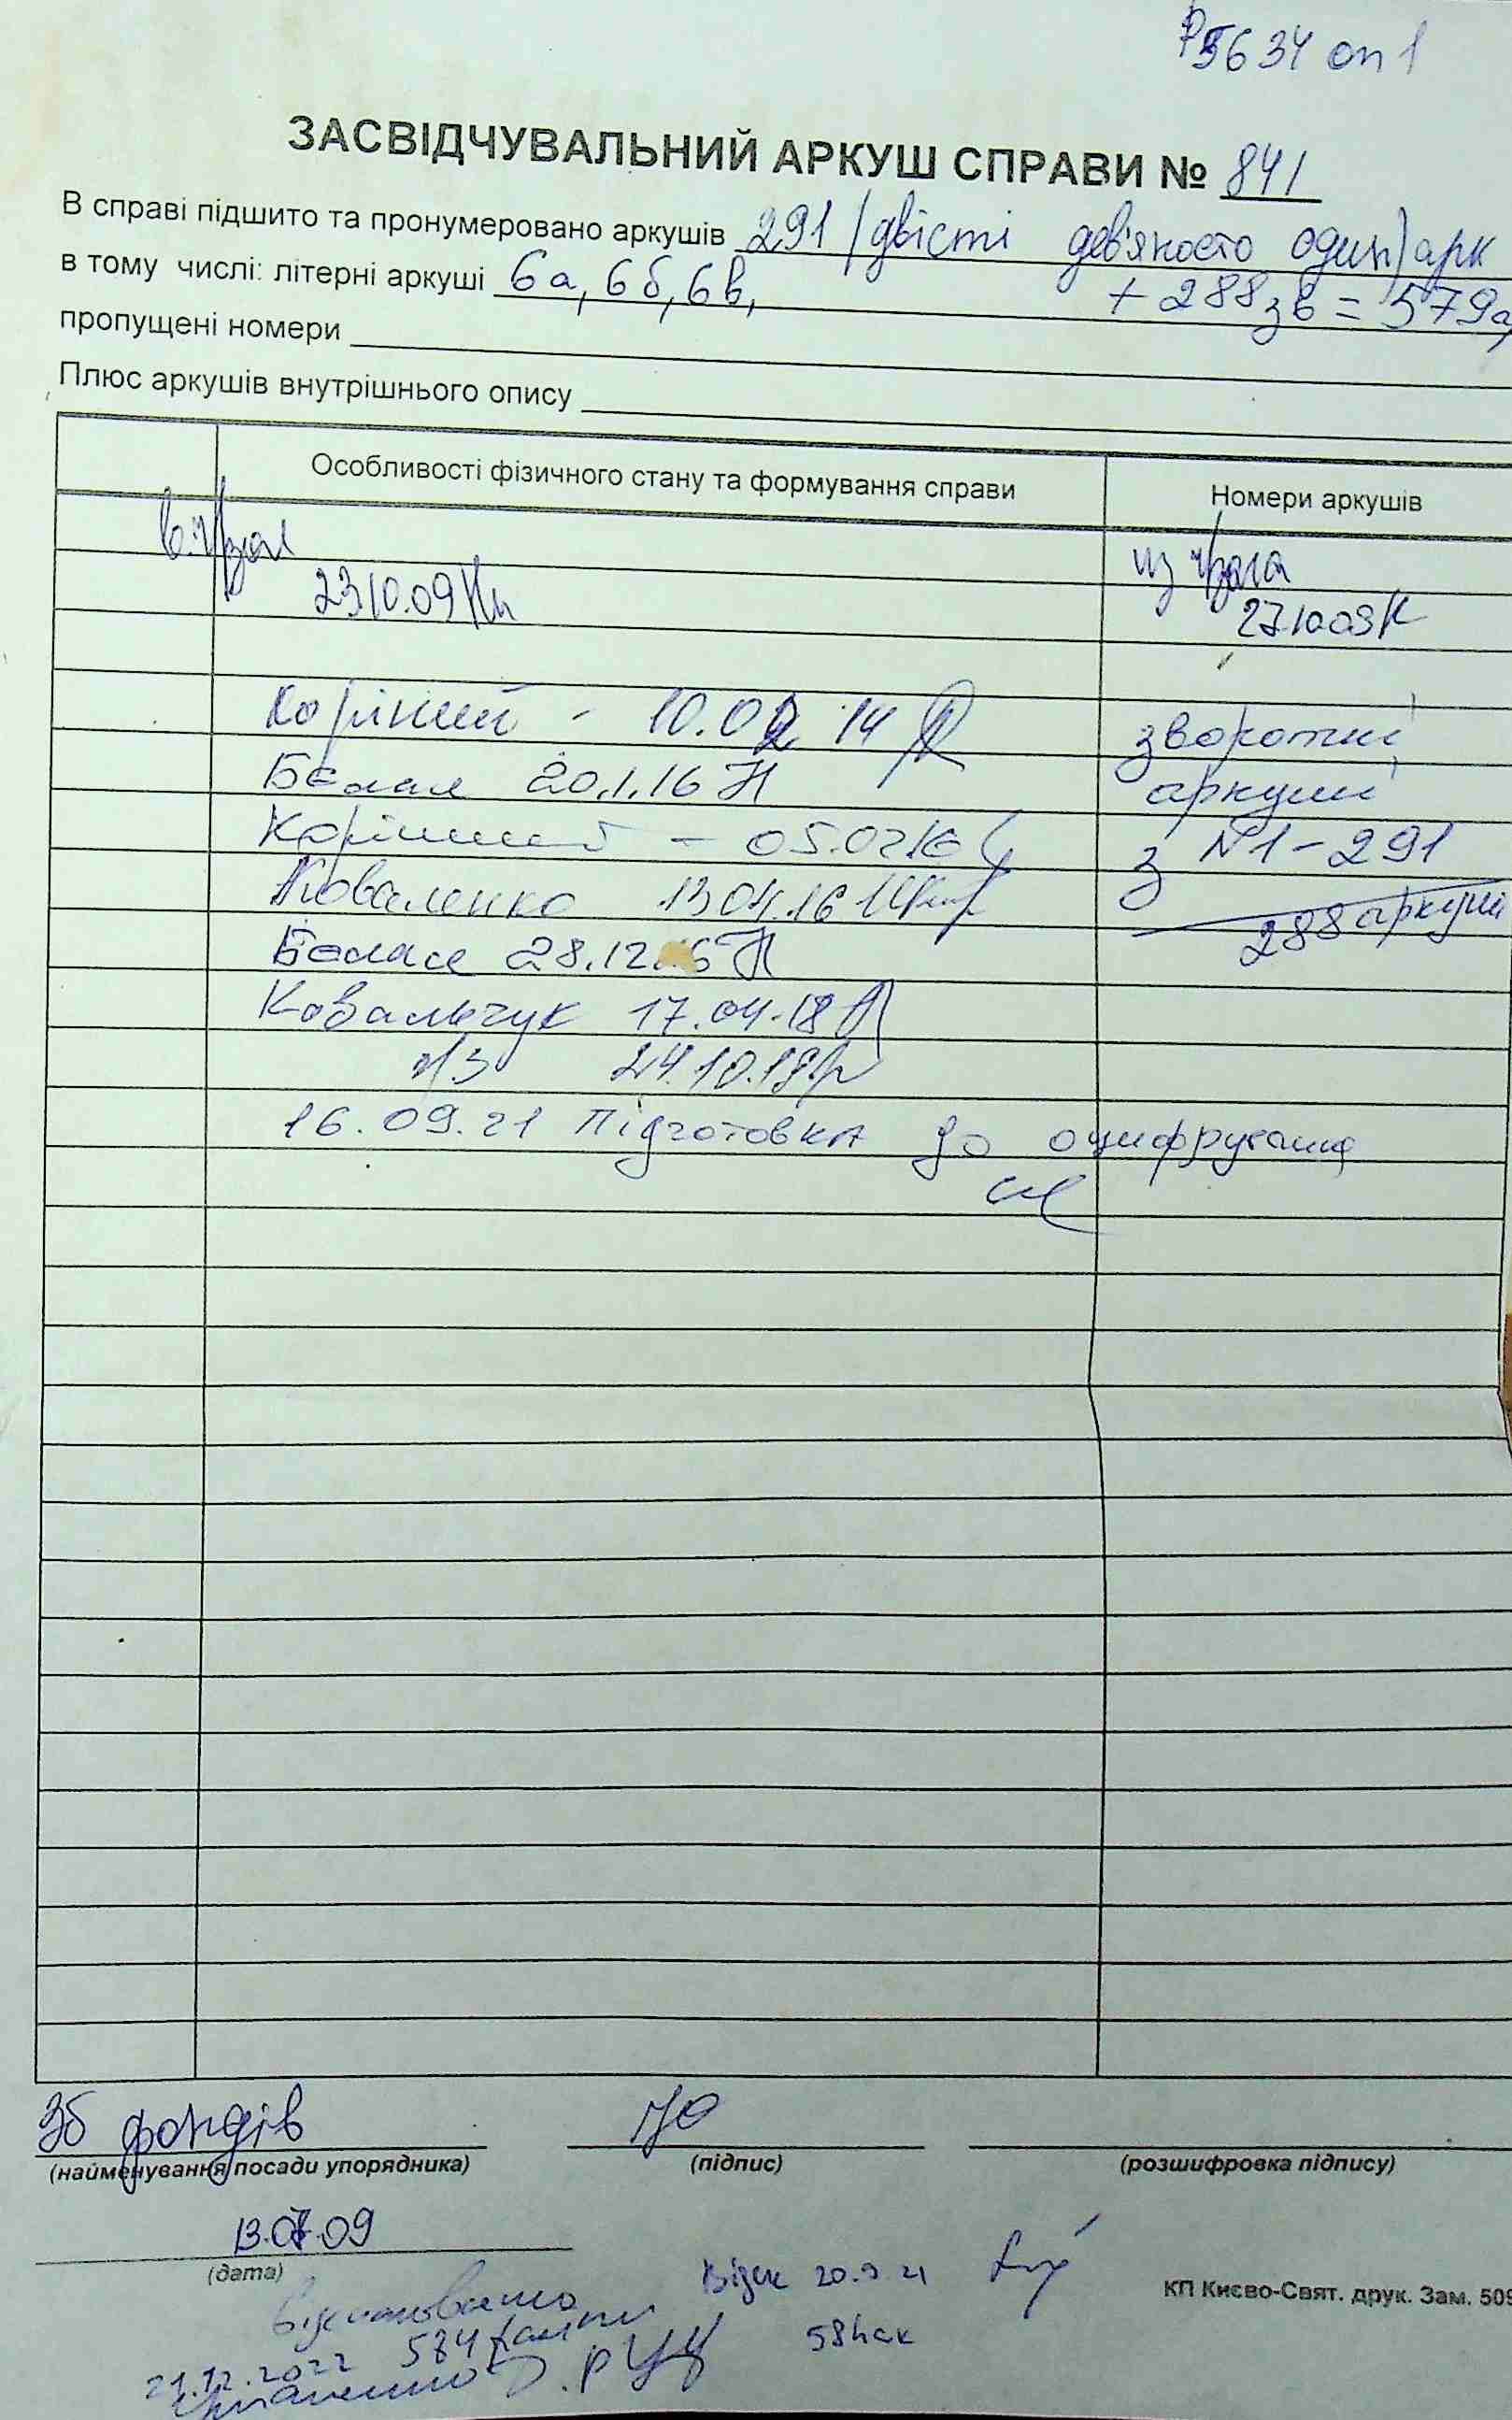 Р5634 оп 1
ЗАСВІДЧУВАЛЬНИЙ АРКУШ СПРАВИ № 841
В справі підшито та пронумеровано аркушів 291 (двісті дев'яносто один) арк
в тому числі: літерні аркуші 6а, 6б, 6в, + 288 зв = 579а
пропущені номери
Плюс аркушів внутрішнього опису
Особливості фізичного стану та формування справи
Номери аркушів
23.10.09
из
27.10.09
Корінний - 10.02.14
зворотні
20.1.16
аркуші
Корінний - 05.02.16
з №1-291
Коваленко 13.04.16
288 аркушів
28.12.16
Ковальчук 17.04.18
24.10.18
16.09.21 Підготовка до оцифрування
Зб фондів
(найменування посади упорядника)
(підпис)
(розшифровка підпису)
13.07.09
(дата)
Відск 20.9.21
КП Києво-Свят. друк. Зам. 509
Відскановано
584
21.12.2022